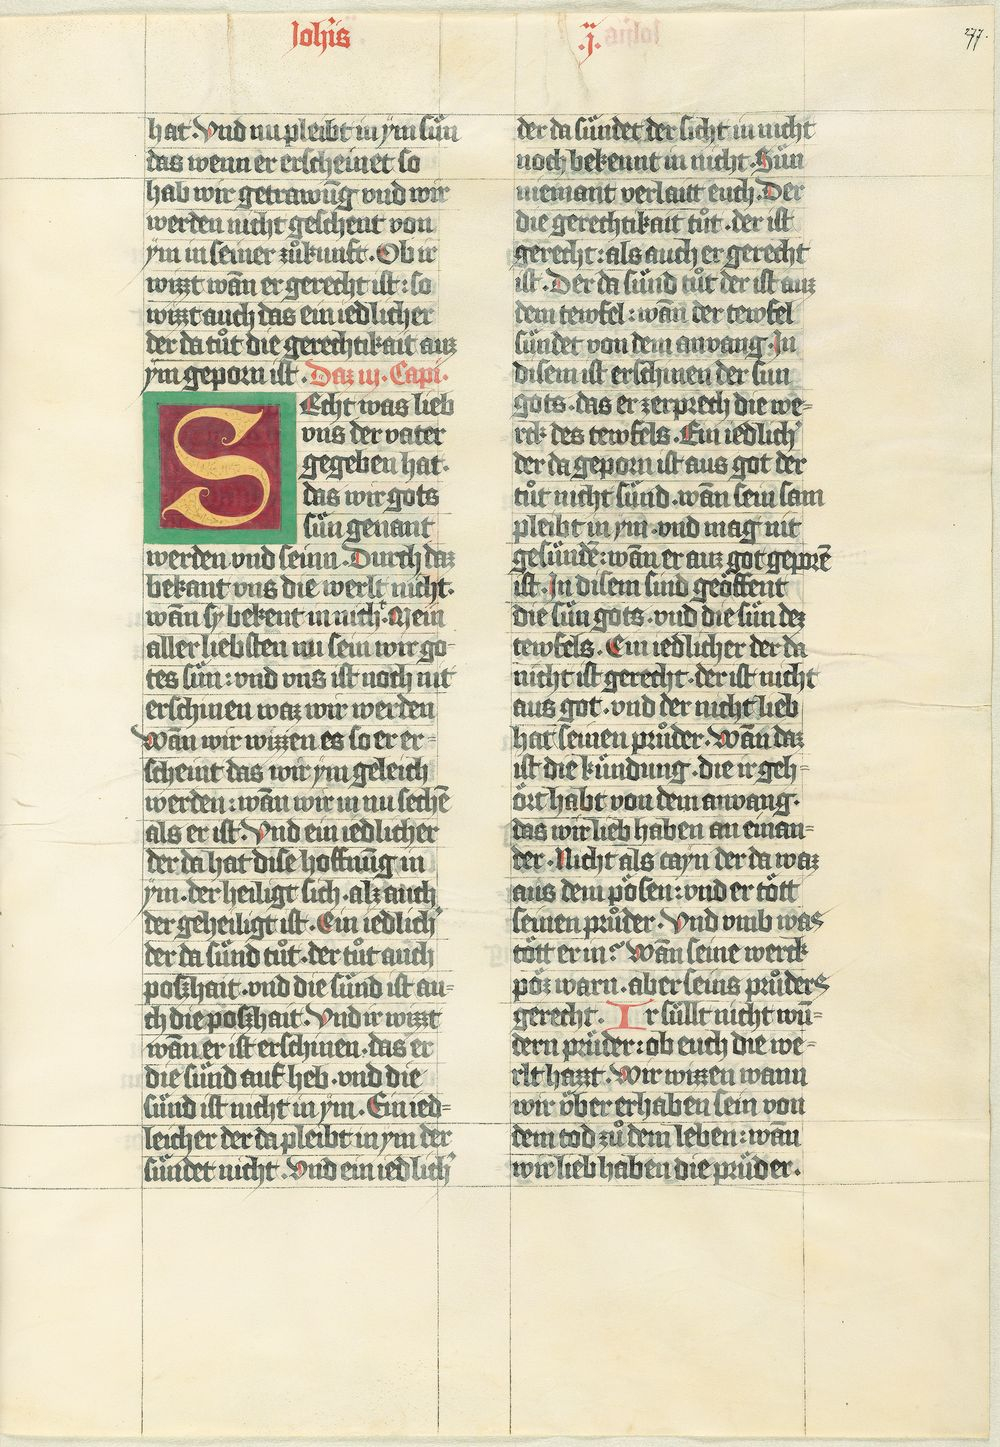 Joh̄is
.j.
277.
hat. Vnd nu pleibt in ẏm sün
das wenn er erscheinet so
hab wir getrawūg vnd wir
werden nicht geschent von
ẏm in seiner zůkunft. Ob ir
wizzt wān er gerecht ist: so
wizzt auch das ein iedlicher
der da tůt die gerechtikait auz
ẏm geporn ist. Daz iij. Capi.
SEcht was lieb
vns der vater
gegeben hat.
das wir gots
sün genant
werden vnd seinn. Durch daz
bekant vns die werlt nicht.
wān sy bekent in nicht. Mein
aller liebsten nu sein wir go-
tes sün: vnd vns ist noch nit
erschinen waz wir werden
Wān wir wizzen es so er er-
scheint das wir ẏm geleich
werden: wān wir in nu sechē
als er ist. Vnd ein iedlicher
der da hat dise hoffnūg in
ẏm. der heiligt sich. alz auch
der geheiligt ist. Ein iedlich'
der da sünd tůt. der tůt auch
poszhait. vnd die sünd ist au-
ch die poszhait. Vnd ir wizzt
wān er ist erschinen. das er
die sünd auf heb. vnd die
sünd ist nicht in ẏm. Ein ied-
leicher der da pleibt in ẏm der
sündet nicht. Vnd ein iedlich'
der da sündet der sicht in nicht
noch bekennt in nicht. Sün
niemant verlaitt euch. Der
die gerechtikait tůt. der ist
gerecht: als auch er gerecht
ist. Der da sünd tůt der ist auz
dem tewfel: wān der tewfel
sündet von dem anvang. In
disem ist erschinen der sun
gots. das er zerprech die we-
rck des tewfels. Ein iedlich'
der da geporn ist aus got der
tůt nicht sünd. wān sein sam
pleibt in ẏm. vnd mag nit
gesündē: wān er auz got geporē
ist. In disem sind geöffent
die sün gots. vnd die sün dez
tewfels. Ein iedlicher der da
nicht ist gerecht. der ist nicht
aus got. vnd der nicht lieb
hat seinen průder. Wān daz
ist die kündung. die ir geh-
ört habt von dem anvang.
das wir lieb haben an einan-
der. Nicht als cayn der da waz
aus dem pösen: vnd er tött
seinen průder. Vnd vmb was
tött er in? Wān seine werck
pöz warn. aber seins průders
gerecht. Ir süllt nicht wū-
dern prüder: ob euch die we-
rlt hazzt. Wir wizzen wann
wir über erhaben sein von
dem tod zů dem leben: wān
wir lieb haben die prüder.